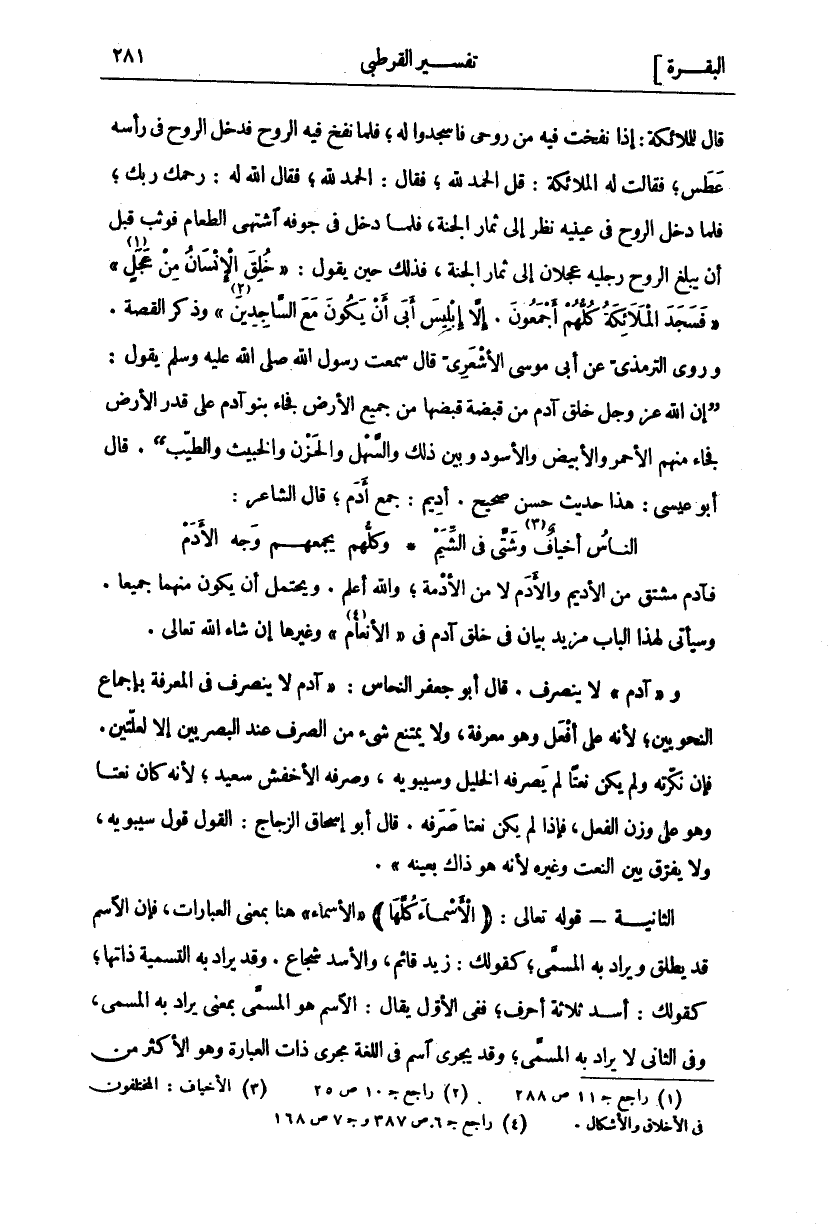 البقرة] تفسير القرطبى ٢٨١
قال للملائكة : إذا نفخت فيه من روحى فاسجدوا له ؛ فلما نفخ فيه الروح فدخل الروح فى رأسه
عَطَس ؛ فقالت له الملائكة : قل الحمد لله ؛ فقال : الحمد لله ؛ فقال الله له : رحمك ربك ؛
فلما دخل الروح فى عينيه نظر إلى ثمار الجنة ، فلما دخل فى جوفه آشتهى الطعام فوثب قبل
أن يبلغ الروح رجليه عجلان إلى ثمار الجنة ، فذلك حين يقول : « خُلِقَ الْإِنْسَانُ مِنْ عَجَلٍ (١) »
« فَسَجَدَ الْمَلَائِكَةُ كُلُّهُمْ أَجْمَعُونَ . إِلَّا إِبْلِيسَ أَبَى أَنْ يَكُونَ مَعَ السَّاجِدِينَ (٢) » وذكر القصة .
و روى الترمذىّ عن أبى موسى الأشْعَرِىّ قال سمعت رسول الله صلى الله عليه وسلم يقول :
”إن الله عز وجل خلق آدم من قبضة قبضها من جميع الأرض فجاء بنو آدم على قدر الأرض
فجاء منهم الأحمر والأبيض والأسود و بين ذلك والسَّهْل والحَزْن والخبيث والطيّب“ . قال
أبو عيسى : هذا حديث حسن صحيح . أديم : جمع أَدَم ؛ قال الشاعر :
الناسُ أخيافٌ (٣) وشَتَّى فى الشِّيَمْ * وكلُّهم يجمعهم وَجه الأَدَمْ
فآدم مشتق من الأديم والأَدَم لا من الأدْمة ؛ والله أعلم . ويحتمل أن يكون منهما جميعا .
وسيأتى لهذا الباب مزيد بيان فى خلق آدم فى « الأنعام (٤) » وغيرها إن شاء الله تعالى .
و « آدم » لا ينصرف . قال أبو جعفر النحاس : « آدم لا ينصرف فى المعرفة بإجماع
النحويين ؛ لأنه على أفْعَل وهو معرفة ، ولا يمتنع شىء من الصرف عند البصريين إلا لعلّتين .
فإن نكّرته ولم يكن نعتًا لم يَصرفه الخليل وسيبويه ، وصرفه الأخفش سعيد ؛ لأنه كان نعتا
وهو على وزن الفعل ، فإذا لم يكن نعتا صَرَفه . قال أبو إسحاق الزجاج : القول قول سيبويه ،
ولا يفرّق بين النعت وغيره لأنه هو ذاك بعينه » .
الثانية — قوله تعالى : ﴿ الْأَسْمَاءَ كُلَّهَا ﴾ «الأسماء» هنا بمعنى العبارات ، فإن الآسم
قد يطلق ويراد به المسمَّى ؛ كقولك : زيد قائم ، والأسد شجاع . وقد يراد به التسمية ذاتها ؛
كقولك : أسد ثلاثة أحرف ؛ ففى الأوّل يقال : الآسم هو المسمَّى بمعنى يراد به المسمى ،
وفى الثانى لا يراد به المسمَّى ؛ وقد يجرى آسم فى اللغة مجرى ذات العبارة وهو الأكثر من
(١) راجع جـ ١١ ص ٢٨٨ . (٢) راجع جـ ١٠ ص ٢٥ (٣) الأخياف : المختلفون
فى الأخلاق والأشكال . (٤) راجع جـ ٦ ص ٣٨٧ و جـ ٧ ص ١٦٨